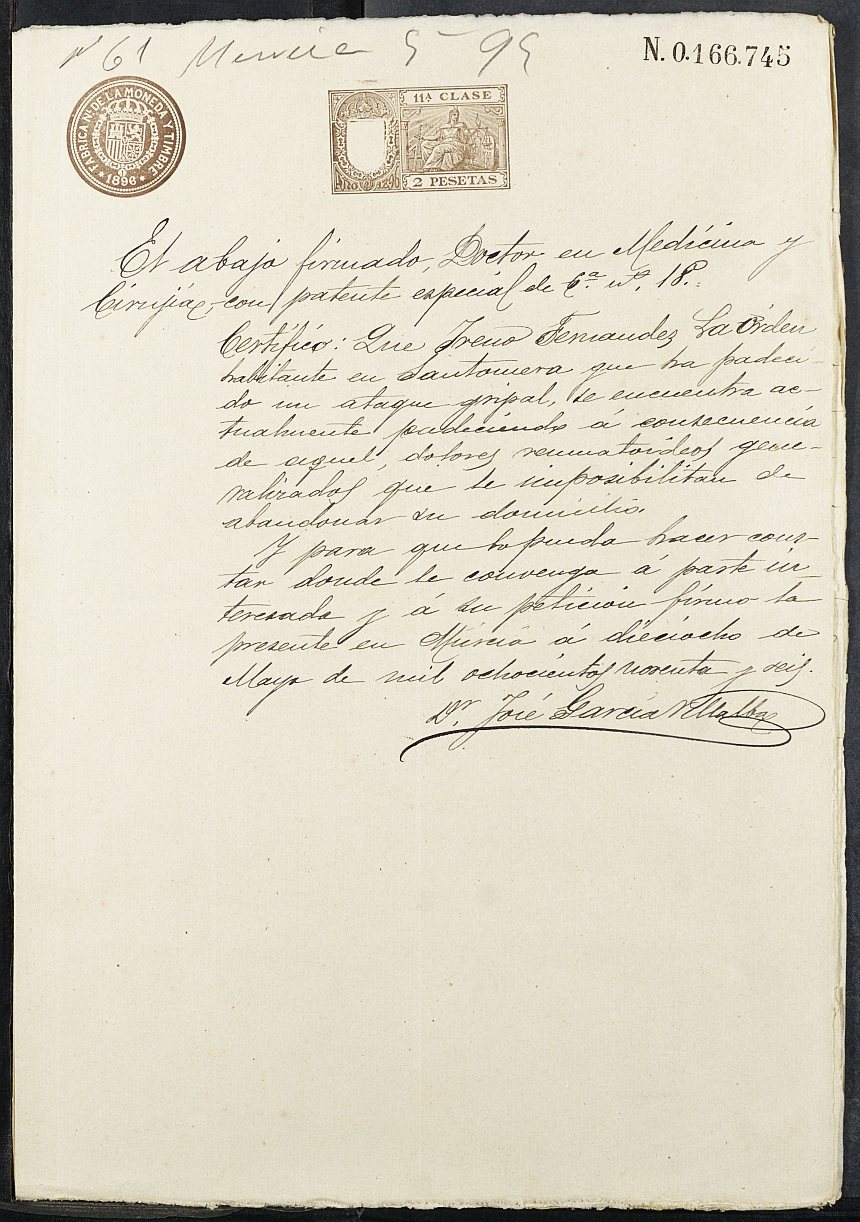 nº 61 Murcia 5ª 95
N. 0.166.745
FABRICA Nal. DE LA MONEDA Y TIMBRE
* 1896 *
11ª CLASE
AÑO 1896
2 PESETAS
El abajo firmado, Doctor en Medicina y
Cirujía, con patente especial de 6ª nº. 18.
Certifico: Que Ireno Fernandez La Orden
habitante en Santomera que ha padeci-
do un ataque gripal, se encuentra ac-
tualmente padeciendo á consecuencia
de aquel, dolores reumatoideos gene-
ralizados que le imposibilitan de
abandonar su domicilio.
Y para que lo pueda hacer cons-
tar donde le convenga á parte in-
teresada y á su petición firmo la
presente en Murcia á dieciocho de
Mayo de mil ochocientos noventa y seis.
Dr. José García Villalba